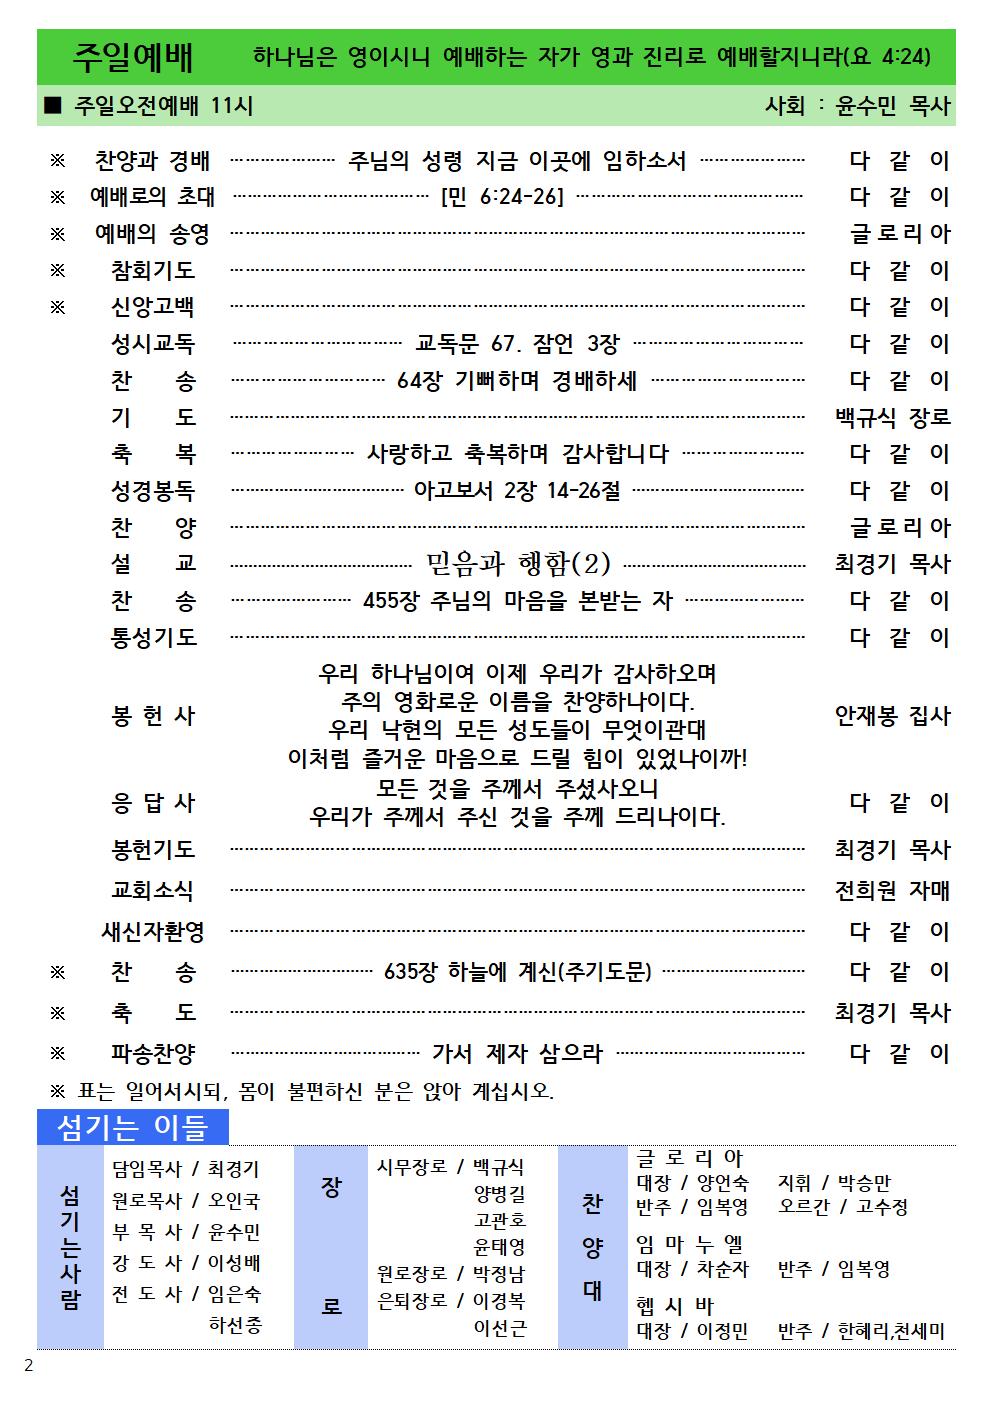 주일예배 하나님은 영이시니 예배하는 자가 영과 진리로 예배할지니라(요 4:24)
■ 주일오전예배 11시 사회 : 윤수민 목사
※ 찬양과 경배 ………………… 주님의 성령 지금 이곳에 임하소서 ………………… 다 같 이
※ 예배로의 초대 ………………… [민 6:24-26] ………………… 다 같 이
※ 예배의 송영 ………………… 글로리아
※ 참회기도 ………………… 다 같 이
※ 신앙고백 ………………… 다 같 이
성시교독 ………………… 교독문 67. 잠언 3장 ………………… 다 같 이
찬 송 ………………… 64장 기뻐하며 경배하세 ………………… 다 같 이
기 도 ………………… 백규식 장로
축 복 ………………… 사랑하고 축복하며 감사합니다 ………………… 다 같 이
성경봉독 ………………… 야고보서 2장 14-26절 ………………… 다 같 이
찬 양 ………………… 글로리아
설 교 ………………… 믿음과 행함(2) ………………… 최경기 목사
찬 송 ………………… 455장 주님의 마음을 본받는 자 ………………… 다 같 이
통성기도 ………………… 다 같 이
우리 하나님이여 이제 우리가 감사하오며
주의 영화로운 이름을 찬양하나이다.
봉 헌 사 안재봉 집사
우리 낙현의 모든 성도들이 무엇이관대
이처럼 즐거운 마음으로 드릴 힘이 있었나이까!
모든 것을 주께서 주셨사오니
응 답 사 다 같 이
우리가 주께서 주신 것을 주께 드리나이다.
봉헌기도 ………………… 최경기 목사
교회소식 ………………… 전희원 자매
새신자환영 ………………… 다 같 이
※ 찬 송 ………………… 635장 하늘에 계신(주기도문) ………………… 다 같 이
※ 축 도 ………………… 최경기 목사
※ 파송찬양 ………………… 가서 제자 삼으라 ………………… 다 같 이
※ 표는 일어서시되, 몸이 불편하신 분은 앉아 계십시오.
섬기는 이들
섬기는사람
담임목사 / 최경기
원로목사 / 오인국
부 목 사 / 윤수민
강 도 사 / 이성배
전 도 사 / 임은숙
하선종
장 로
시무장로 / 백규식
양병길
고관호
윤태영
원로장로 / 박정남
은퇴장로 / 이경복
이선근
찬양대
글 로 리 아
대장 / 양언숙 지휘 / 박승만
반주 / 임복영 오르간 / 고수정
임 마 누 엘
대장 / 차순자 반주 / 임복영
헵 시 바
대장 / 이정민 반주 / 한혜리,천세미
2